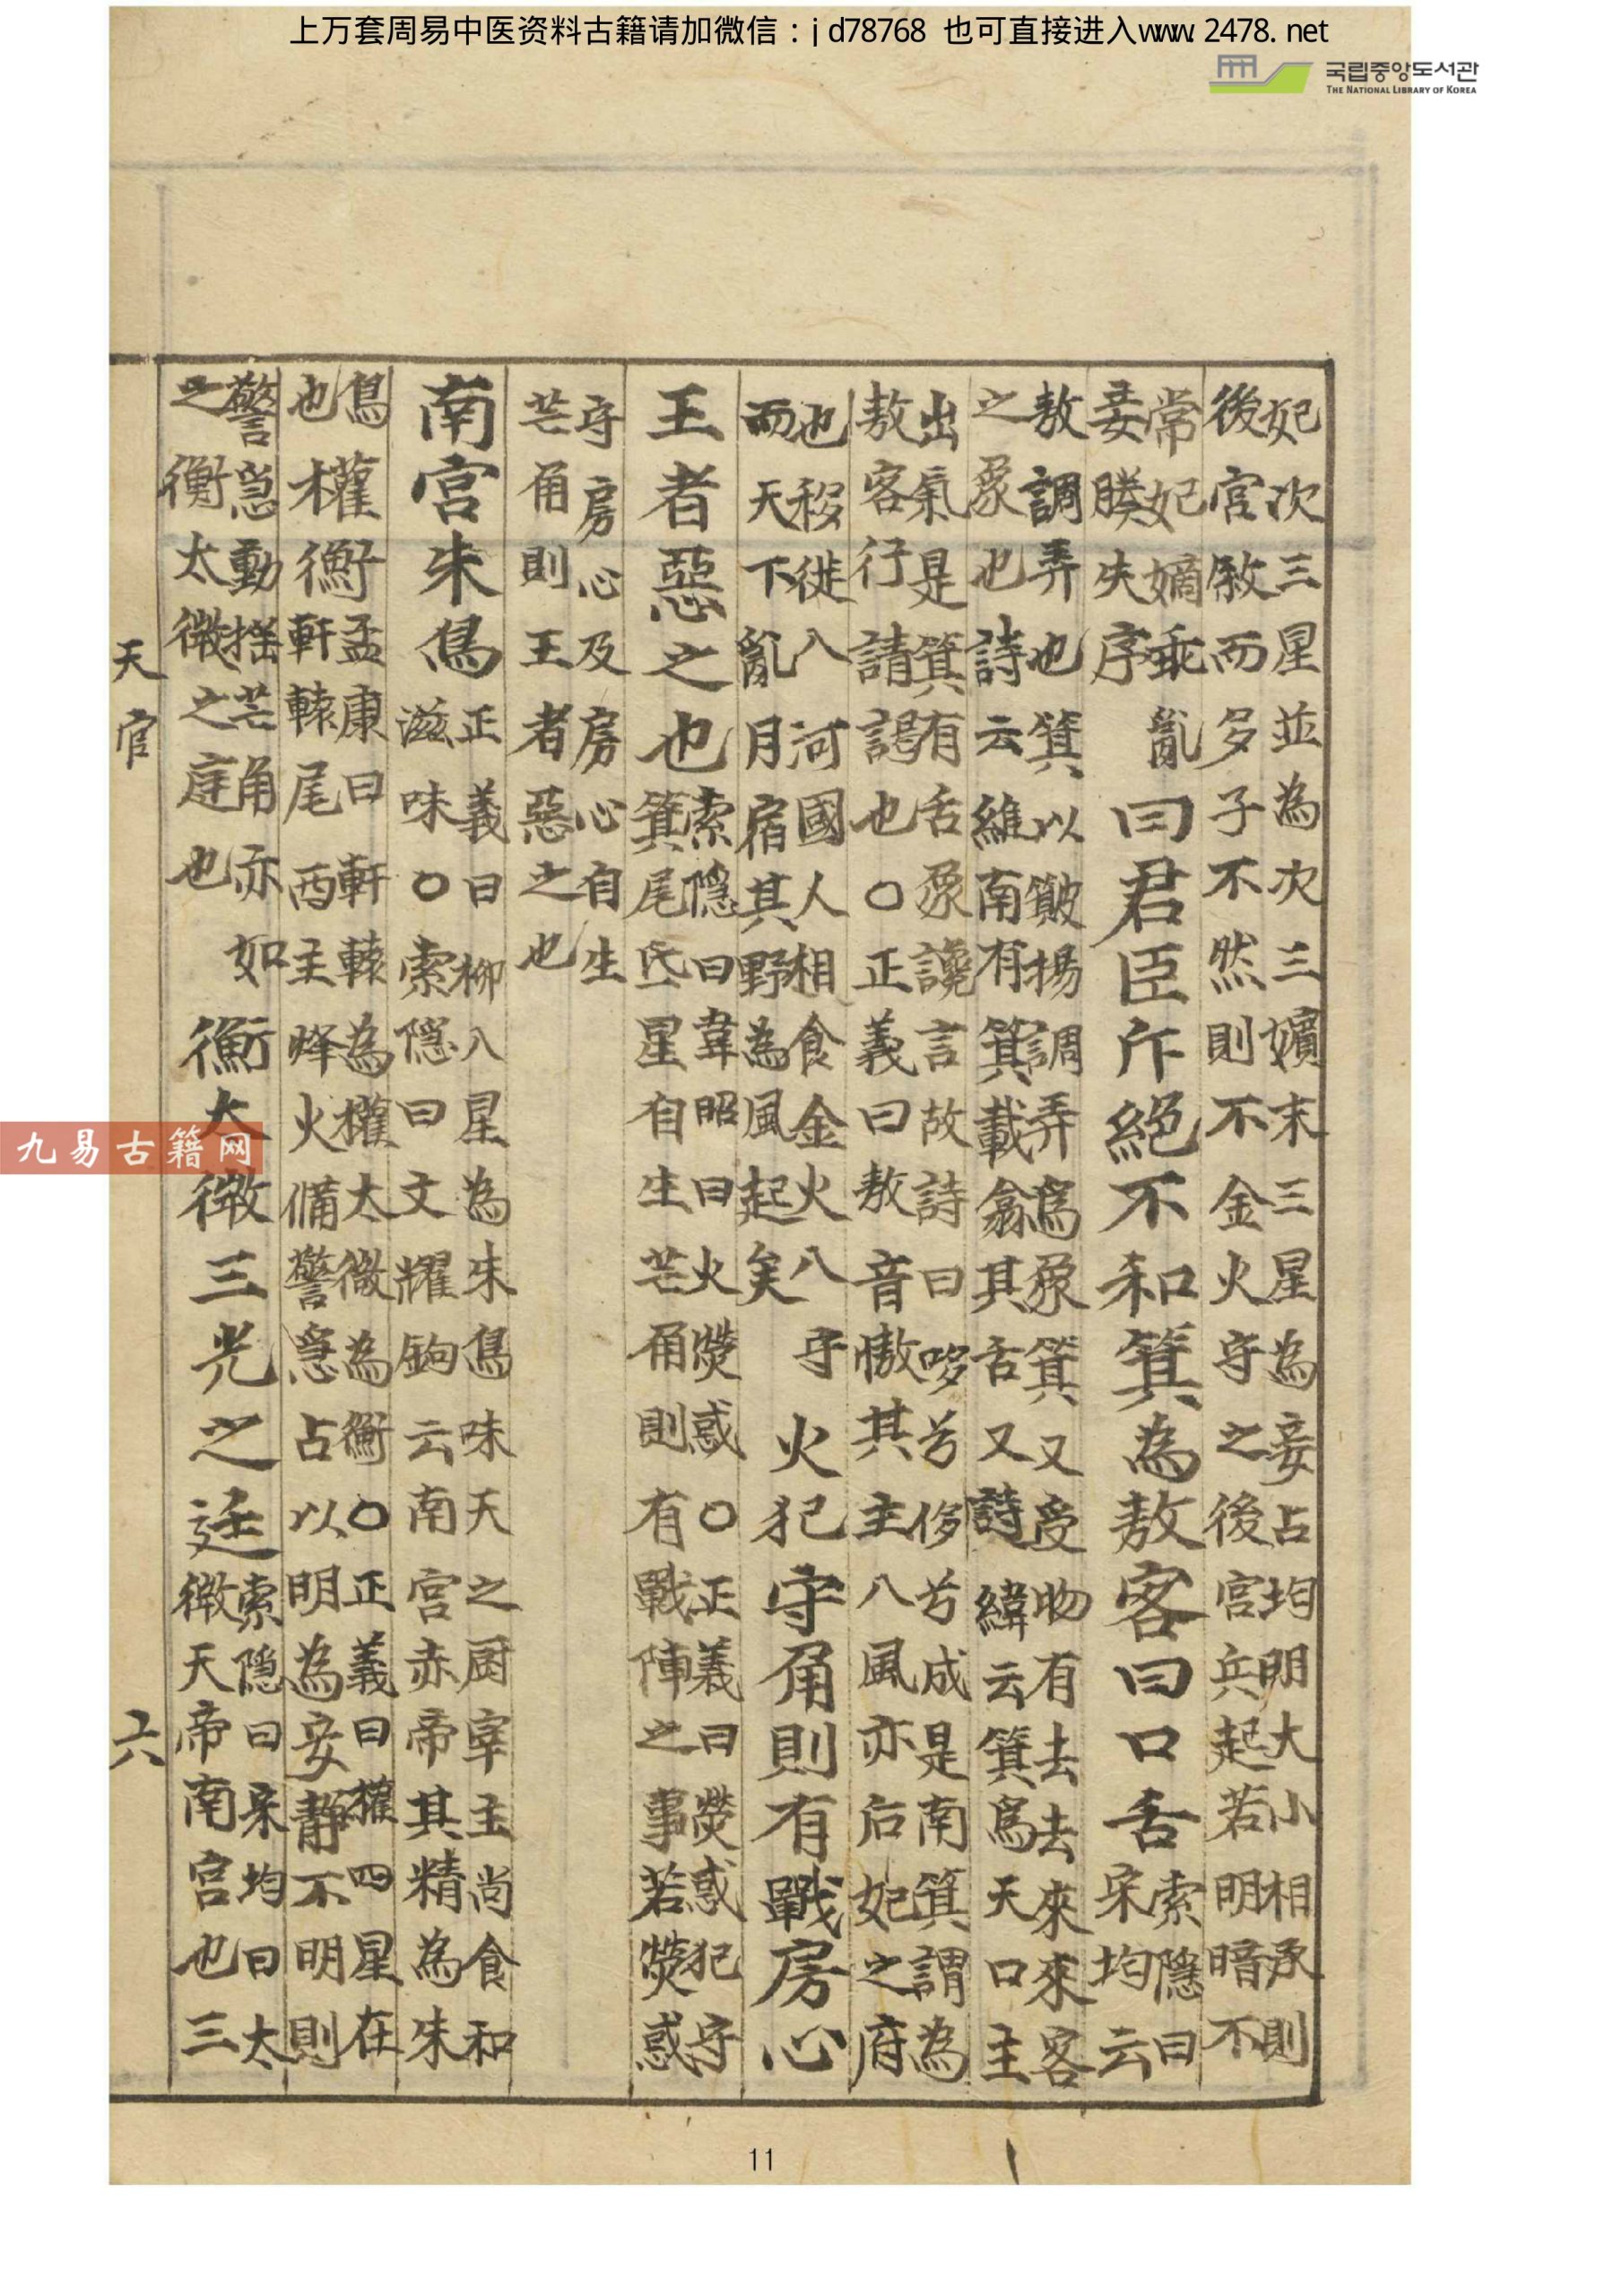 上万套周易中医资料古籍请加微信：jd78768 也可直接进入www.2478.net
국립중앙도서관
THE NATIONAL LIBRARY OF KOREA
妃次三星並為次三嬪末三星為妾占均明大小相承則
後宮敘而多子不然則不金火守之後宮兵起若明暗不
常妃嫡乖亂
妾媵失序
曰君臣斥絕不和箕為敖客曰口舌
索隱曰
宋均云
敖調弄也箕以簸揚調弄爲象箕又受物有去去來來客
之象也詩云維南有箕載翕其舌又詩緯云箕爲天口主
出氣是箕有舌象讒言故詩曰哆兮侈兮成是南箕謂為
敖客行請謁也○正義曰敖音慠其主八風亦后妃之府
也移徙入河國人相食金火入守
而天下亂月宿其野為風起矣
火犯守角則有戰房心
王者惡之也
索隱曰韋昭曰火熒惑○正義曰熒惑犯守
箕尾氐星自生芒角則有戰陣之事若熒惑
守房心及房心自生
芒角則王者惡之也
南宮朱鳥
正義曰柳八星為朱鳥味天之厨宰主尚食和
滋味○索隱曰文耀鉤云南宮赤帝其精為朱
鳥
也
權衡
孟康曰軒轅為權太微為衡○正義曰權四星在
軒轅尾西主烽火備警急占以明為安靜不明則
警急動搖芒角亦如
之衡太微之庭也
衡太微三光之廷
索隱曰宋均曰太
微天帝南宮也三
天官
六
九易古籍网
11